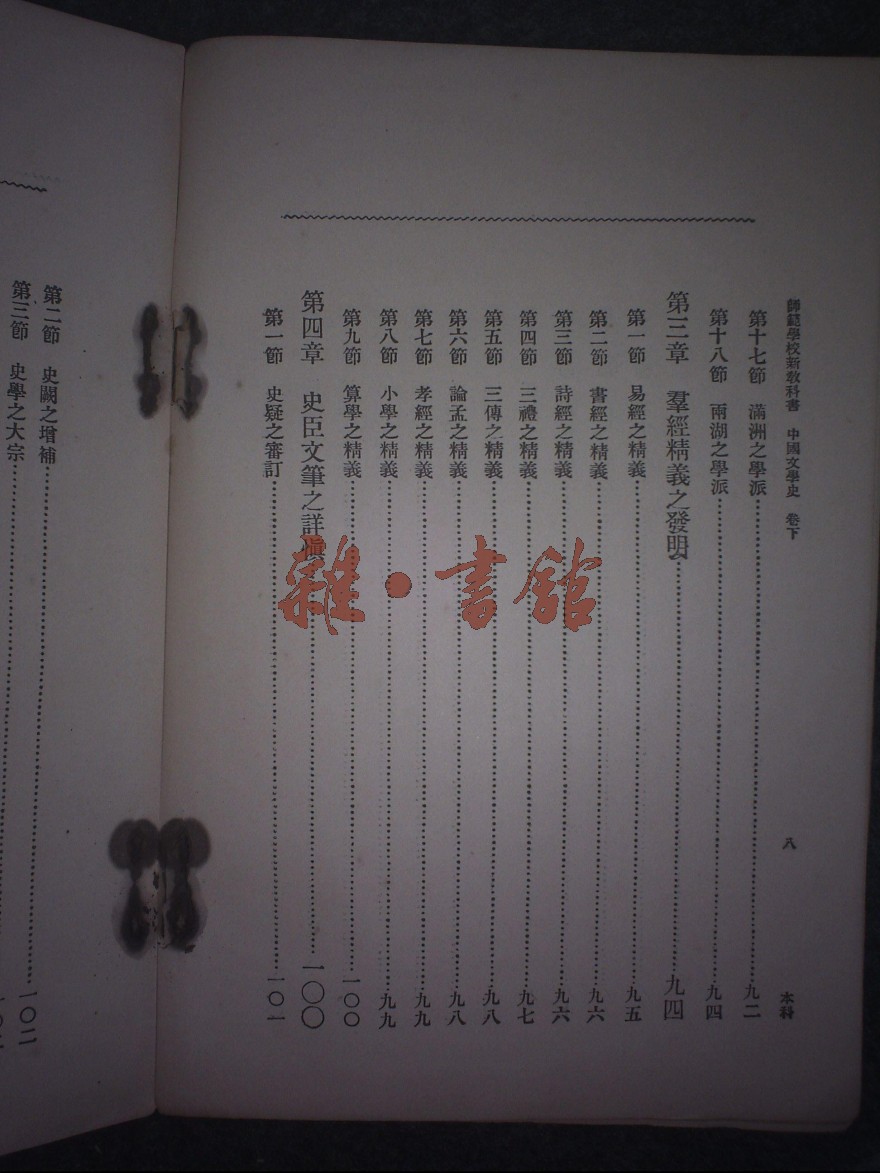 師範學校新教科書 中國文學史 卷下 八 本科
第十七節 滿洲之學派 九二
第十八節 兩湖之學派 九四
第三章 羣經精義之發明 九四
第一節 易經之精義 九五
第二節 書經之精義 九六
第三節 詩經之精義 九六
第四節 三禮之精義 九七
第五節 三傳之精義 九八
第六節 論孟之精義 九八
第七節 孝經之精義 九九
第八節 小學之精義 九九
第九節 算學之精義 一〇〇
第四章 史臣文筆之詳愼 一〇〇
第一節 史疑之審訂 一〇一
第二節 史闕之增補 一〇二
第三節 史學之大宗
雜·書館